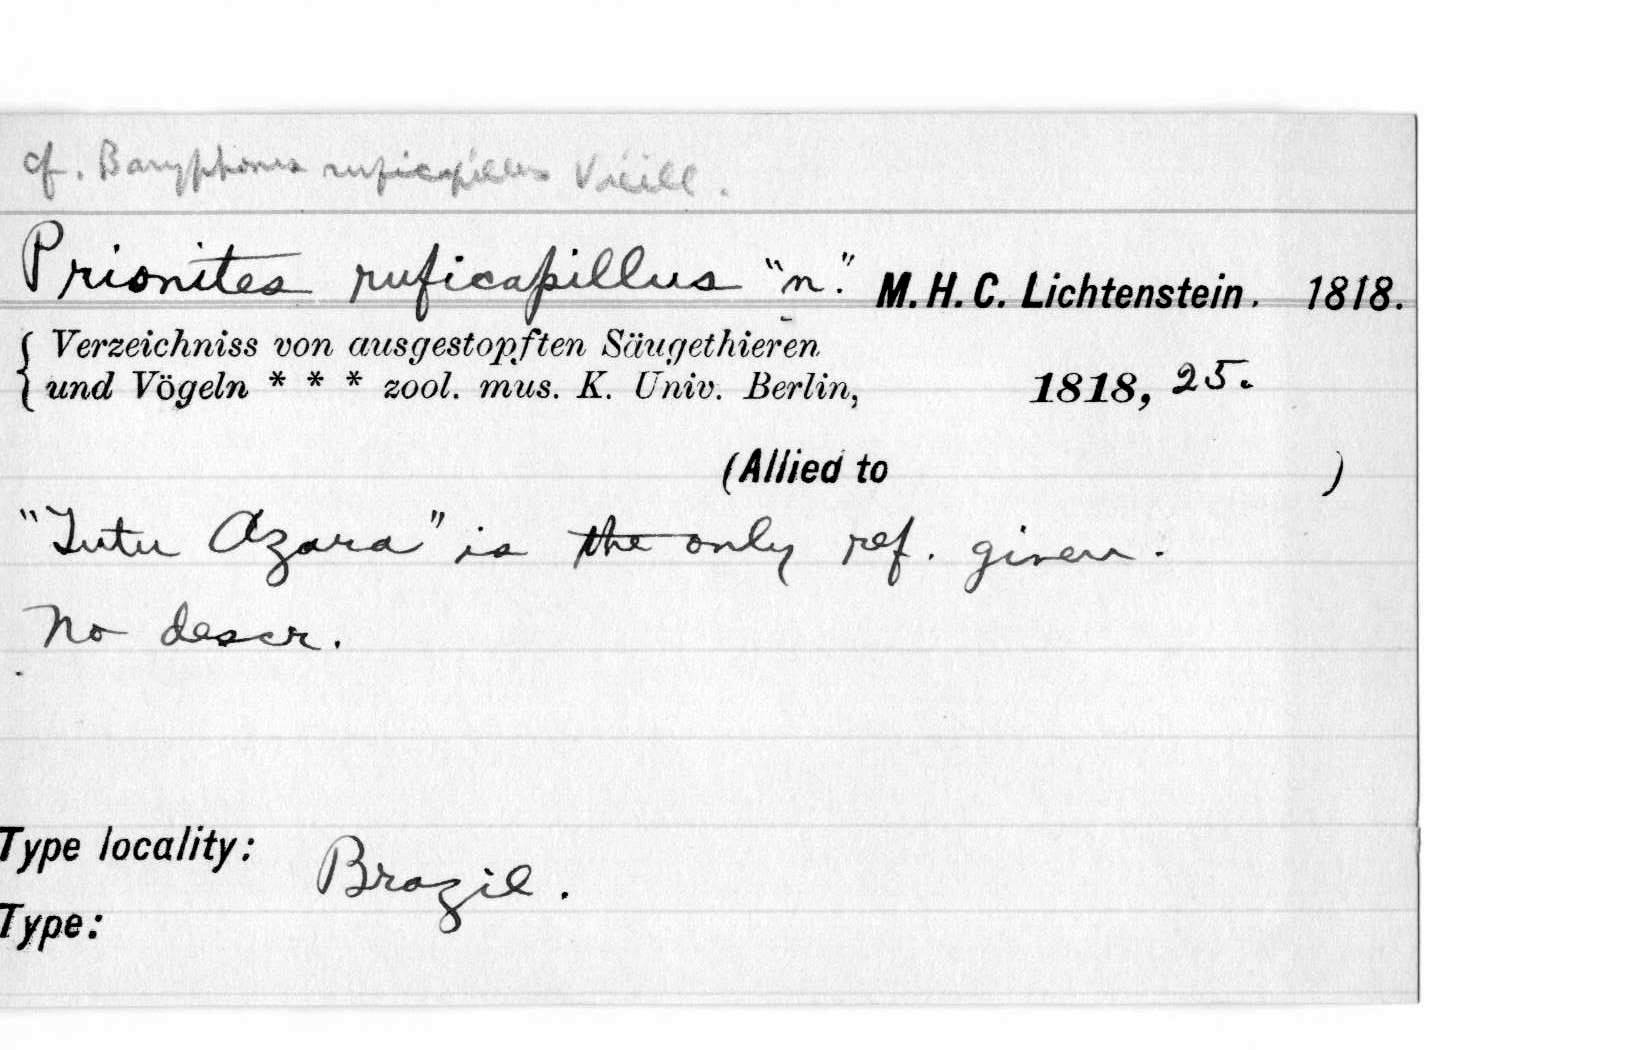 cf. Baryphonus ruficapillus Vieill.
Prionites ruficapillus "n". M. H. C. Lichtenstein. 1818.
Verzeichniss von ausgestopften Säugethieren
und Vögeln * * * zool. mus. K. Univ. Berlin, 1818, 25.
(Allied to )
"Tutu Azara" is the only ref. given.
No descr.
Type locality: Brazil.
Type: